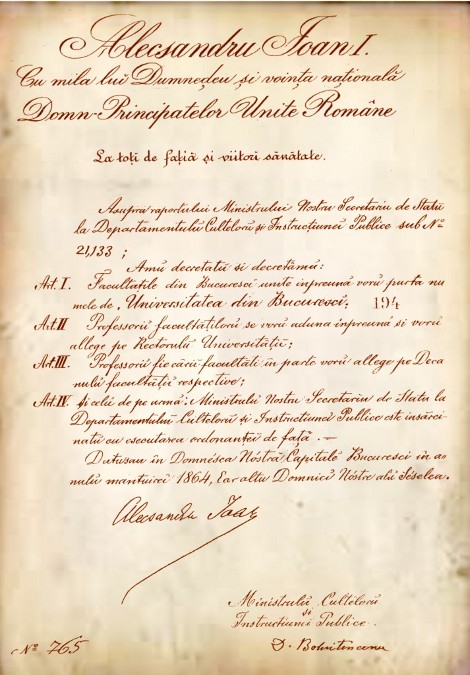 Alecsandru Ioan I.
Cu mila lui Dumnedeu și voința națională
Domn Principatelor Unite Române
La toți de fațiă și viitori sănătate.
Asupra raportului Ministrului Nostru Secretariu de Statu
la Departamentulu Cultelorŭ și Instrucțiuneĭ Publice sub No
21,133 ;
Amŭ decretatŭ si decretămă:
Art. I. Facultatile din Bucuresci unite inpreună vorŭ purta nu
mele de „Universitatea din Bucuresci; 194
Art II Professorii facultatilorŭ se vorŭ aduna inpreună si vorŭ
allege pe Rectorulŭ Universitatii;
Art. III. Professorii fie cării facultati in parte vorŭ allege pe Deca
nulŭ facultatii respective;
Art. IV și celu de pe urmă. Ministrulŭ Nostru Secretariu de Statu la
Departamentulŭ Cultelorŭ și Instrucțiuneĭ Publice este insărci
natu cu esecutarea ordonantei de fată. —
Datusau in Domnésca Nóstră Capitală Bucuresci in a
nulŭ mantuirei 1864, Ear altu Domniei Nóstre alŭ Séselea.
Alecsandru Ioan
Ministrulŭ Cultelorŭ
și
Instrucțiunei Publice.
D. Bolintineanu
No 765